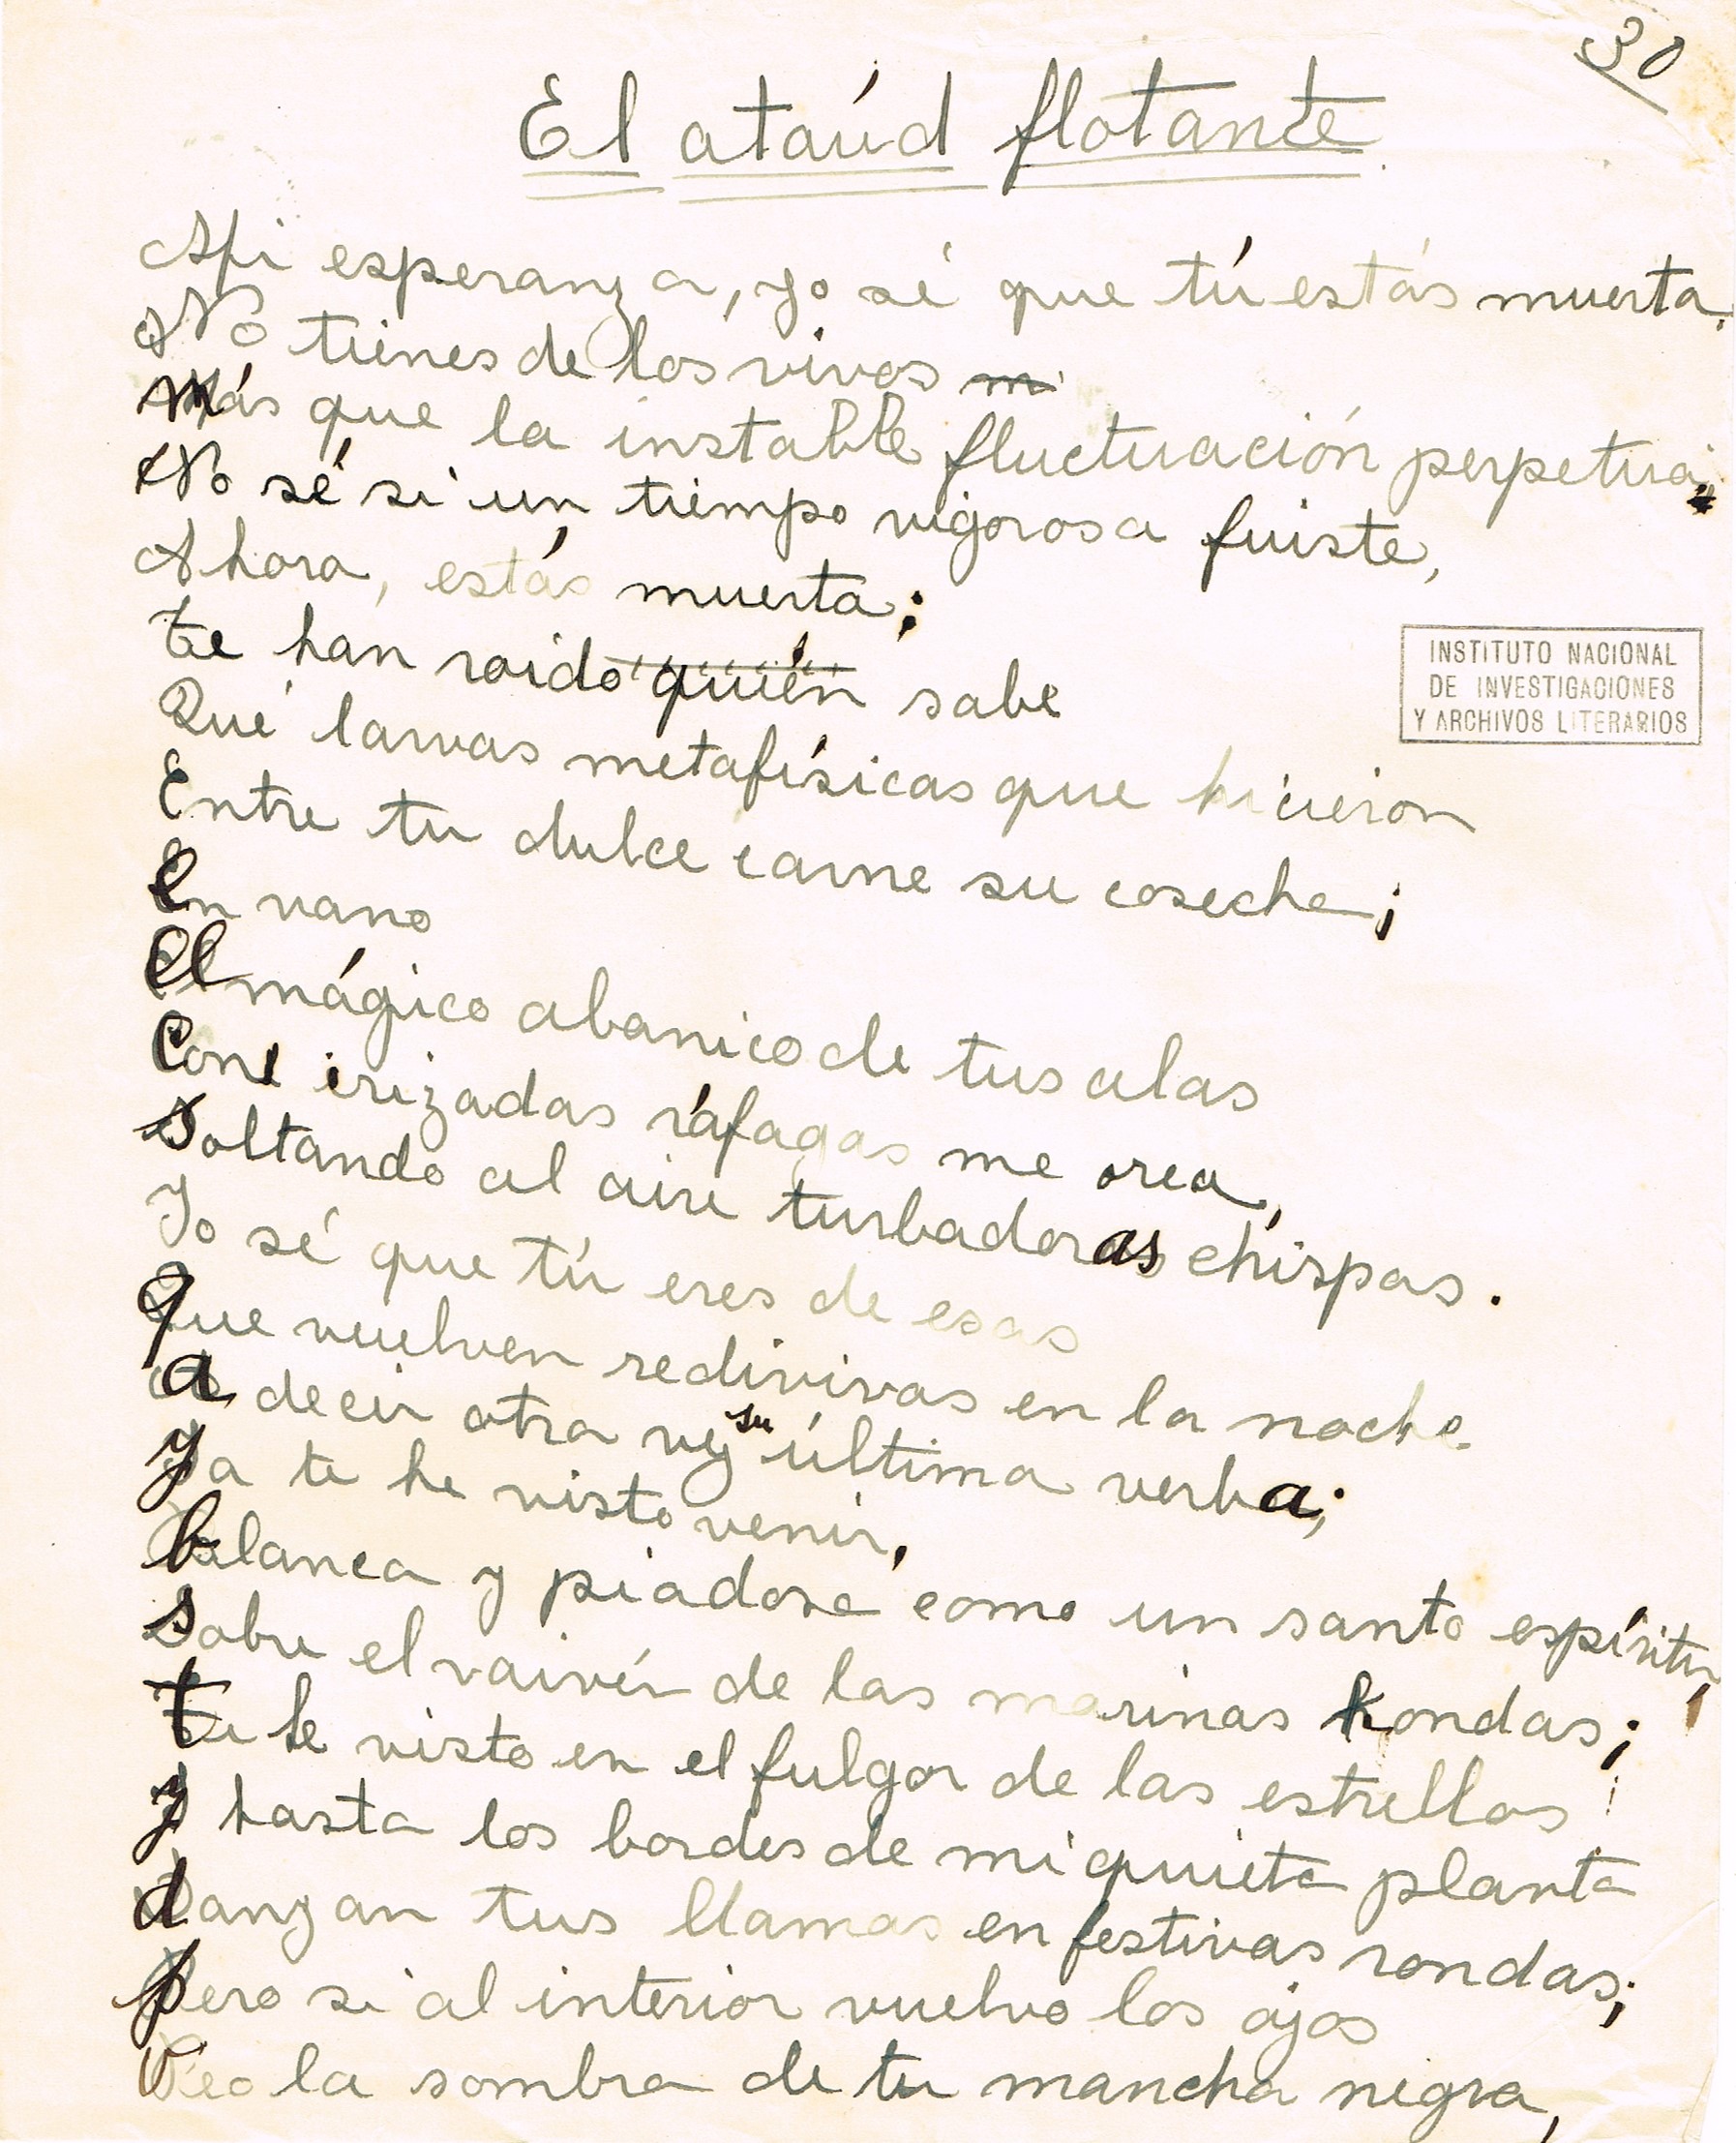 30
El ataúd flotante
Mi esperanza, yo sé que tú estás muerta.
No tienes de los vivos m
más que la instable fluctuación perpetua;
No sé si un tiempo vigorosa fuiste,
Ahora, estás muerta;
te han roído quién sabe
Qué larvas metafísicas que hicieron
Entre tu dulce carne su cosecha;
En vano
El mágico abanico de tus alas
Con irizadas ráfagas me orea,
soltando al aire turbadoras chispas.
Yo sé que tú eres de esas
que vuelven redivivas en la noche
a decir otra vez su última verba;
ya te he visto venir,
blanca y piadosa como un santo espíritu,
sobre el vaivén de las marinas hondas;
te he visto en el fulgor de las estrellas
y hasta los bordes de mi quieta planta
danzan tus llamas en festivas rondas;
pero si al interior vuelvo los ojos
Veo la sombra de tu mancha negra,
INSTITUTO NACIONAL
DE INVESTIGACIONES
Y ARCHIVOS LITERARIOS